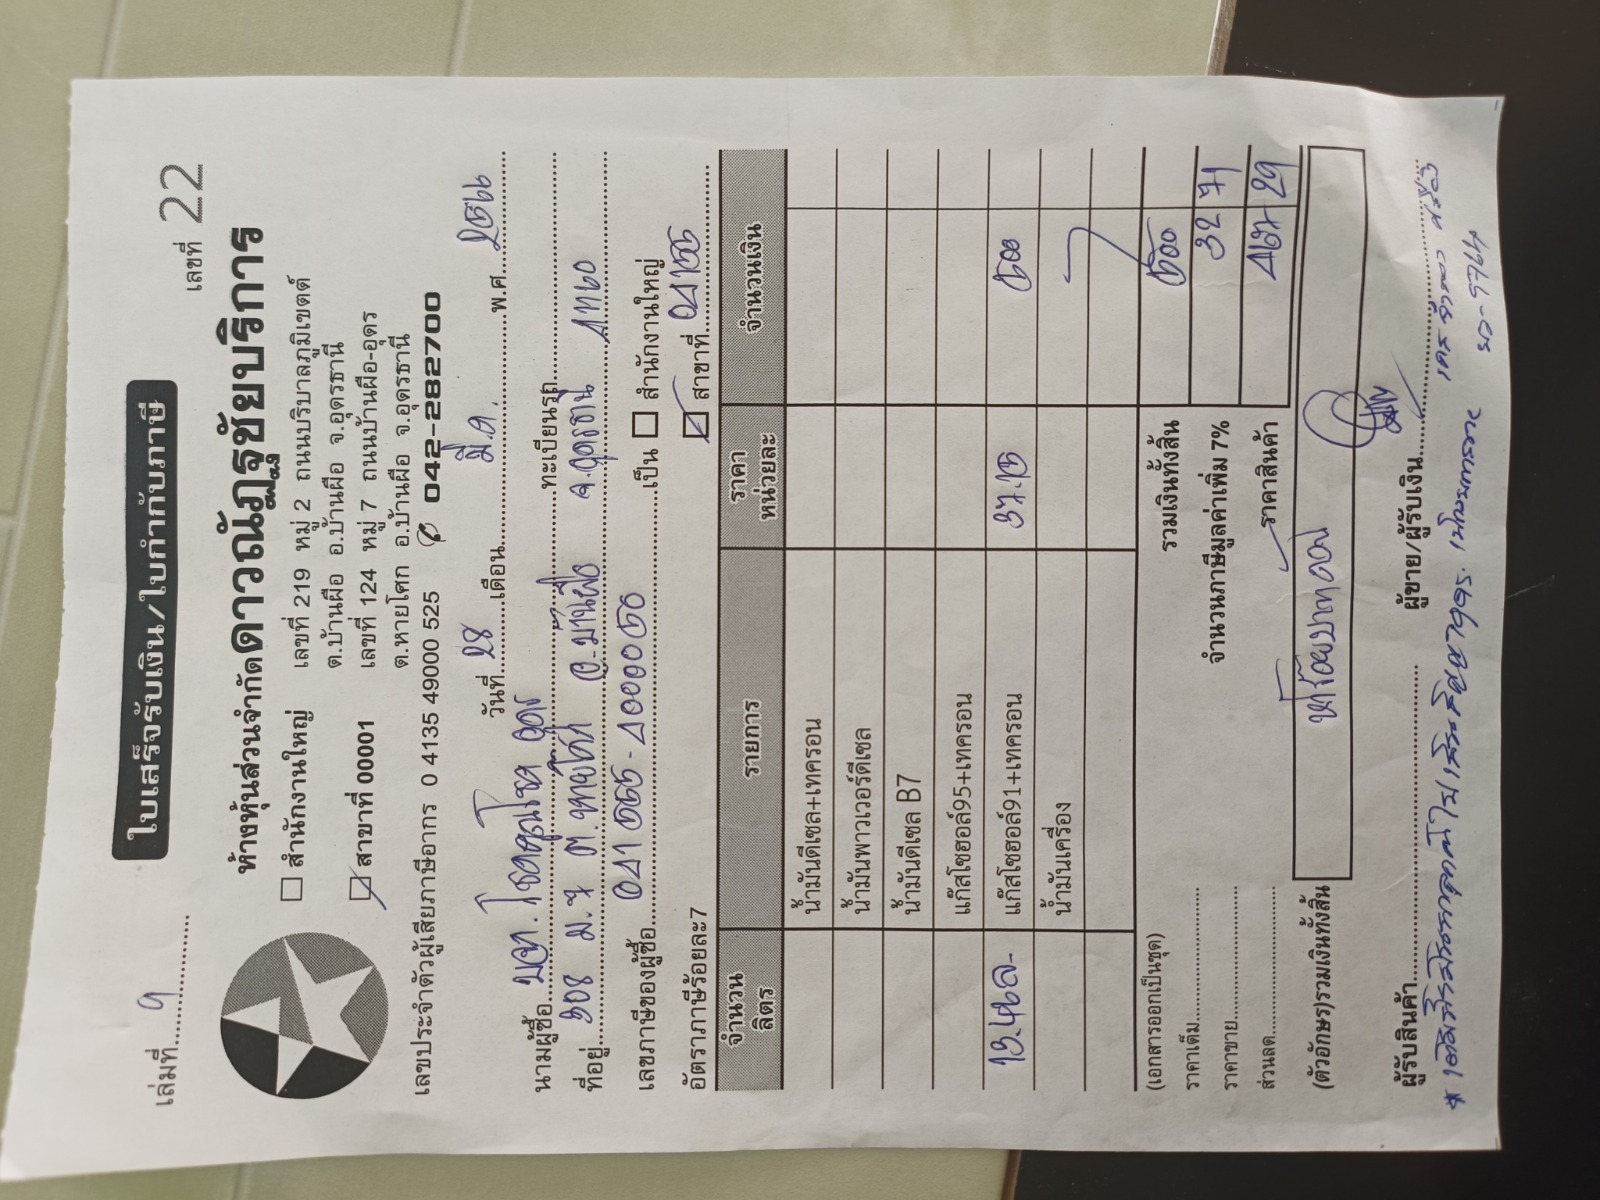 เล่มที่ 9
เลขที่ 22
ใบเสร็จรับเงิน/ใบกำกับภาษี
ห้างหุ้นส่วนจำกัดดาวณัฏฐชัยบริการ
สำนักงานใหญ่ เลขที่ 219 หมู่ 2 ถนนบริบาลภูมิเขตต์
ต.บ้านผือ อ.บ้านผือ จ.อุดรธานี
สาขาที่ 00001 เลขที่ 124 หมู่ 7 ถนนบ้านผือ-อุดร
ต.หายโศก อ.บ้านผือ จ.อุดรธานี
เลขประจำตัวผู้เสียภาษีอากร 0 4135 49000 525 042-282700
วันที่ 28 เดือน มี.ค. พ.ศ. 2566
นามผู้ซื้อ บจก. ทะเบียนรถ
ที่อยู่ 308 ม.7 ต.หายโศก อ.บ้านผือ จ.อุดรธานี 41160
เลขภาษีของผู้ซื้อ เป็น สำนักงานใหญ่
อัตราภาษีร้อยละ7 สาขาที่ 04155
จำนวนลิตร รายการ ราคาหน่วยละ จำนวนเงิน
น้ำมันดีเซล+เทครอน
น้ำมันพาวเวอร์ดีเซล
น้ำมันดีเซล B7
แก๊สโซฮอล์95+เทครอน
แก๊สโซฮอล์91+เทครอน 37.15 500
น้ำมันเครื่อง
(เอกสารออกเป็นชุด) รวมเงินทั้งสิ้น 500
ราคาเต็ม จำนวนภาษีมูลค่าเพิ่ม 7% 32 71
ราคาขาย ราคาสินค้า 467 29
ส่วนลด
(ตัวอักษร)รวมเงินทั้งสิ้น ห้าร้อยบาทถ้วน
ผู้รับสินค้า ผู้ขาย/ผู้รับเงิน